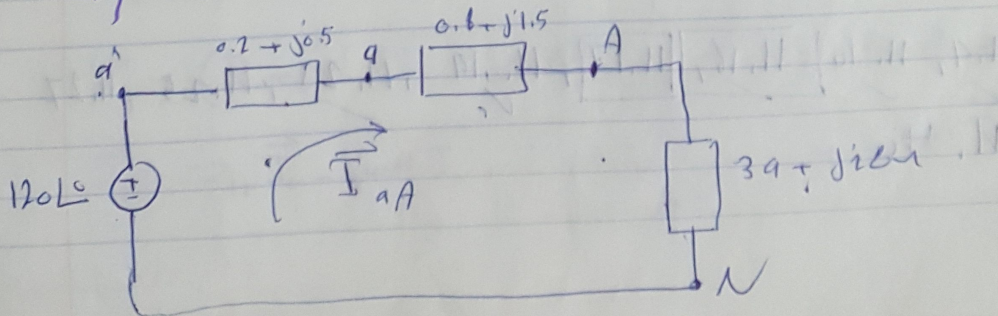 0.2 + j0.5
0.8 + j1.5
a'
a
A
120∠0°
I aA
39 + j28
N